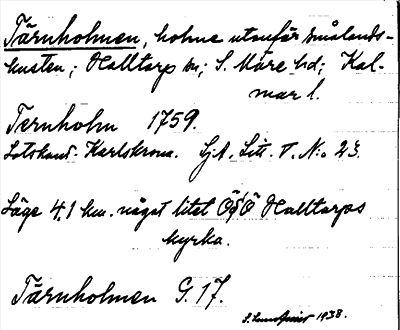 Tärnholmen, holme utanför smålands-
kusten; Halltorp sn; S. Möre hd; Kal-
mar l.
Ternholm 1759.
Lotskand. Karlskrona. Sj A, Litt. T. No 23.
Läge 4,1 km. något litet ÖSÖ Halltorps
kyrka.
Tärnholmen G. 17.
1938.